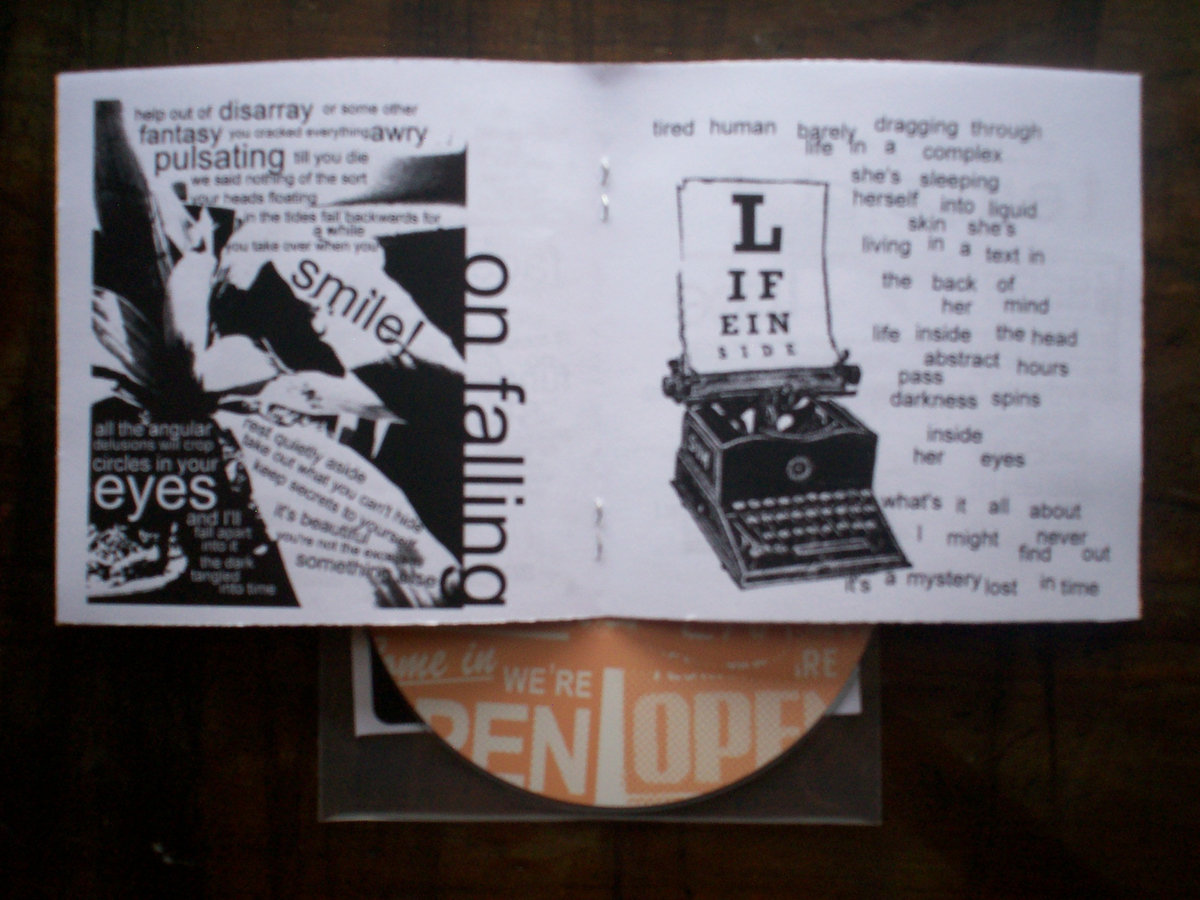 help out of disarray or some other
fantasy you cracked everything awry
pulsating till you die
we said nothing of the sort
your heads floating
in the tides fall backwards for
a while
you take over when you
smile!
all the angular
delusions will crop
circles in your
eyes
and I'll
fall apart
into it
the dark
tangled
into time
rest quietly aside
take out what you can't hide
keep secrets to yourself
it's beautiful
you're not the
something else
on falling
tired human barely dragging through
life in a complex
she's sleeping
herself into liquid
skin she's
living in a text in
the back of
her mind
life inside the head
abstract hours
pass
darkness spins
inside
her eyes
what's it all about
I might never
find out
it's a mystery lost in time
L
IF
EIN
SIDE
come in
WE'RE
OPEN
OPEN